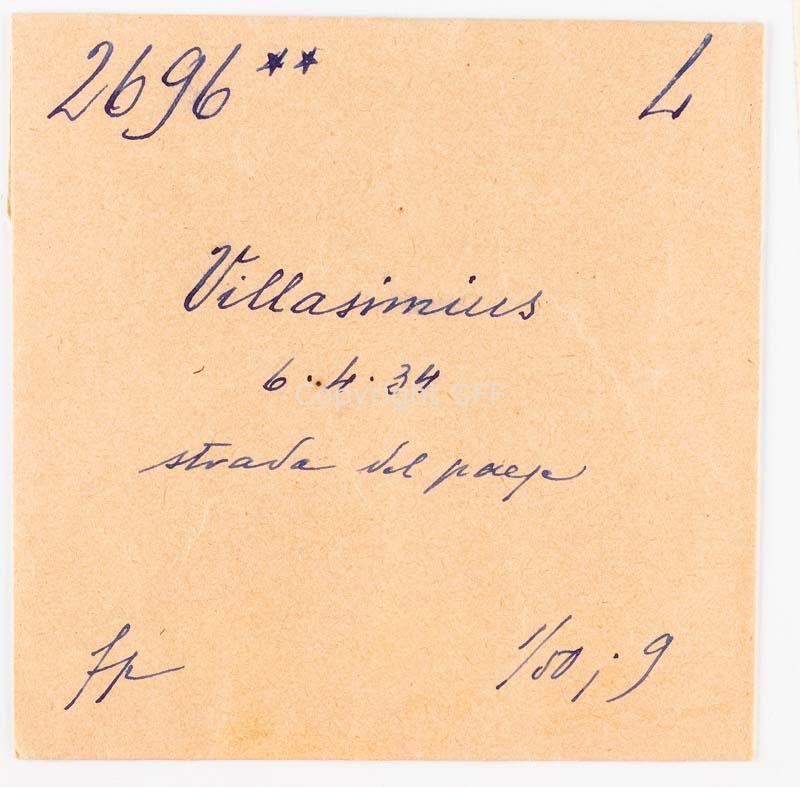 2696** L
Villasimius
6.4.34
Copyright SFF
strada del paese
fp
1/50; 9